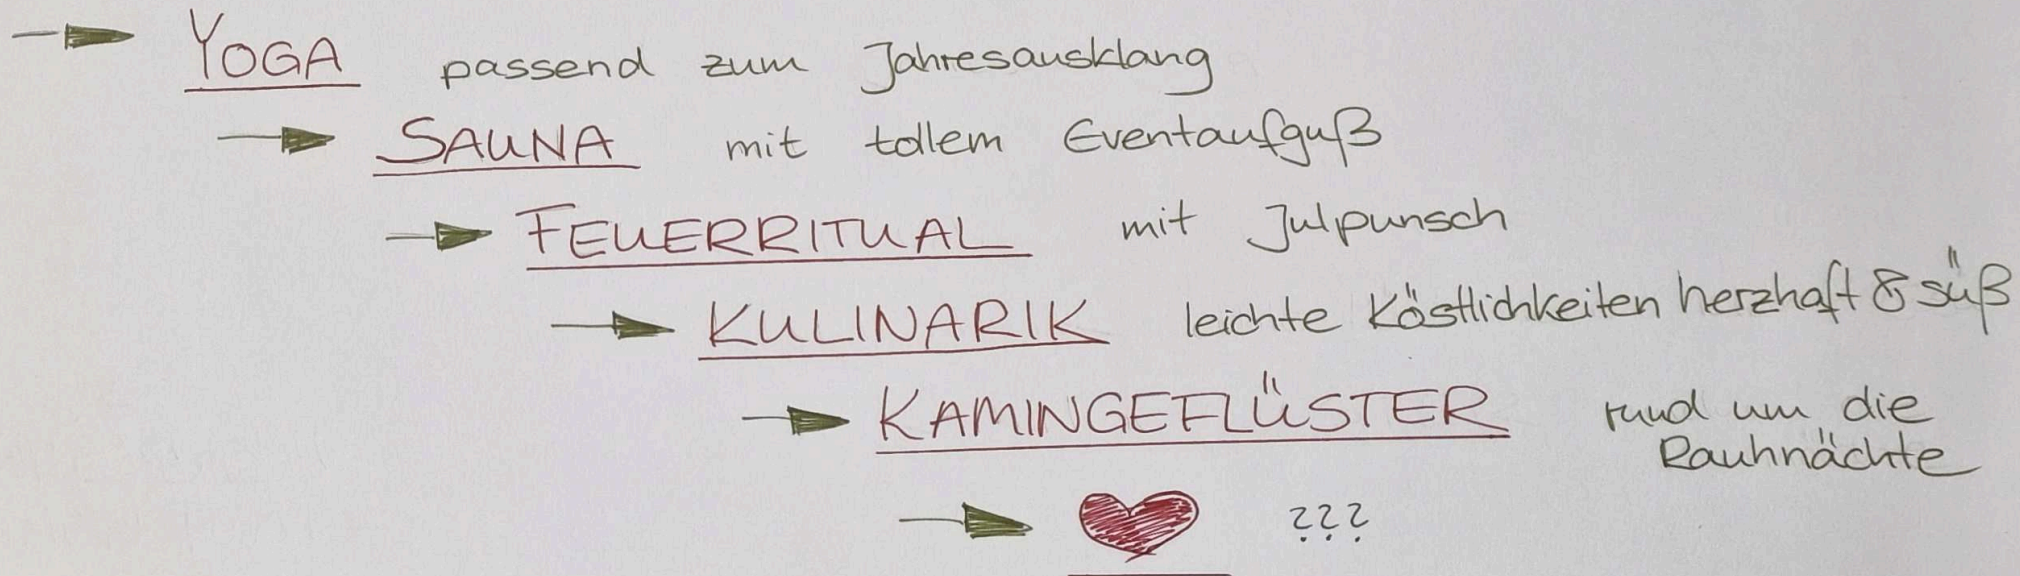 YOGA passend zum Jahresausklang
SAUNA mit tollem Eventaufguß
FEUERRITUAL mit Julpunsch
KULINARIK leichte Köstlichkeiten herzhaft & süß
KAMINGEFLÜSTER rund um die
Rauhnächte
???